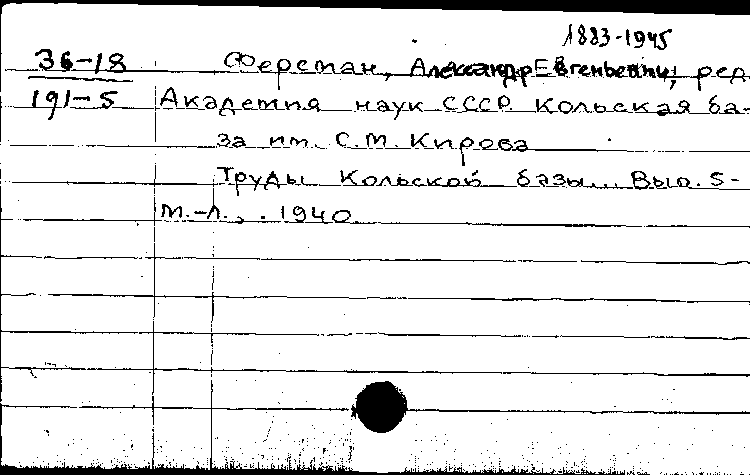 1883-1945
36-18 Ферсман, Александр Евгеньевич, ред.
191-5 Академия наук СССР. Кольская ба-
за им. С.М. Кирова
Труды Кольской базы... Вып. 5-
М.-Л., . 1940.